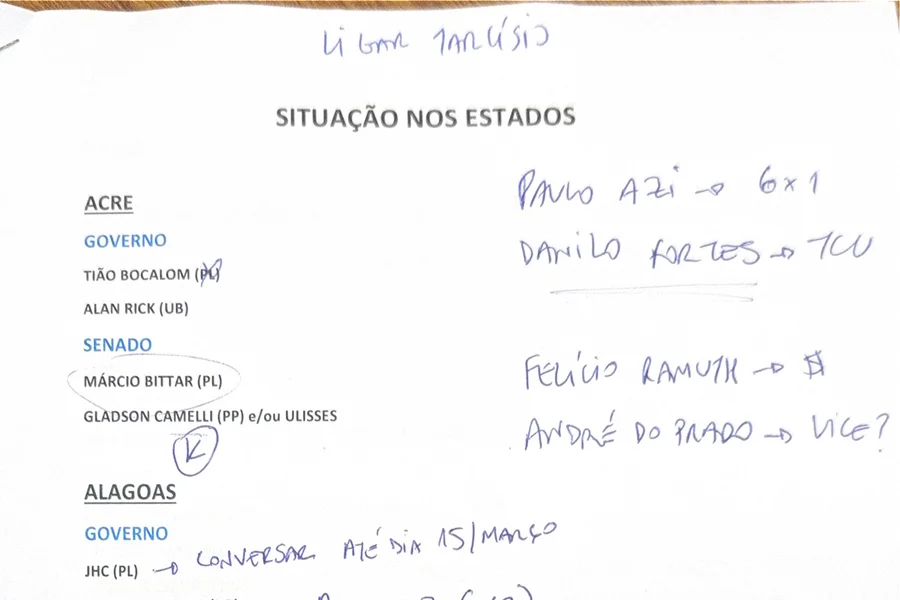 LIGAR TARCÍSIO
SITUAÇÃO NOS ESTADOS
PAULO AZI → 6x1
DANILO FORTES → TCU
FELÍCIO RAMUTH → $
ANDRÉ DO PRADO → VICE?
ACRE
GOVERNO
TIÃO BOCALOM (PL)
ALAN RICK (UB)
SENADO
MÁRCIO BITTAR (PL)
GLADSON CAMELLI (PP) e/ou ULISSES
K
ALAGOAS
GOVERNO
JHC (PL) → CONVERSAR ATÉ DIA 15/MARÇO